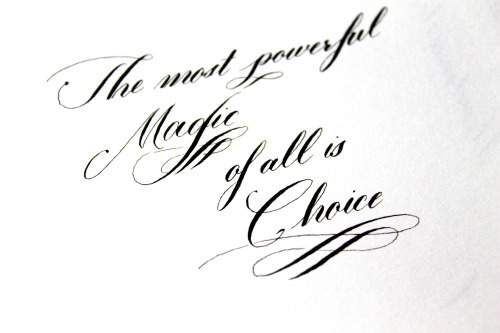 The most powerful
Magic
of all is
Choice